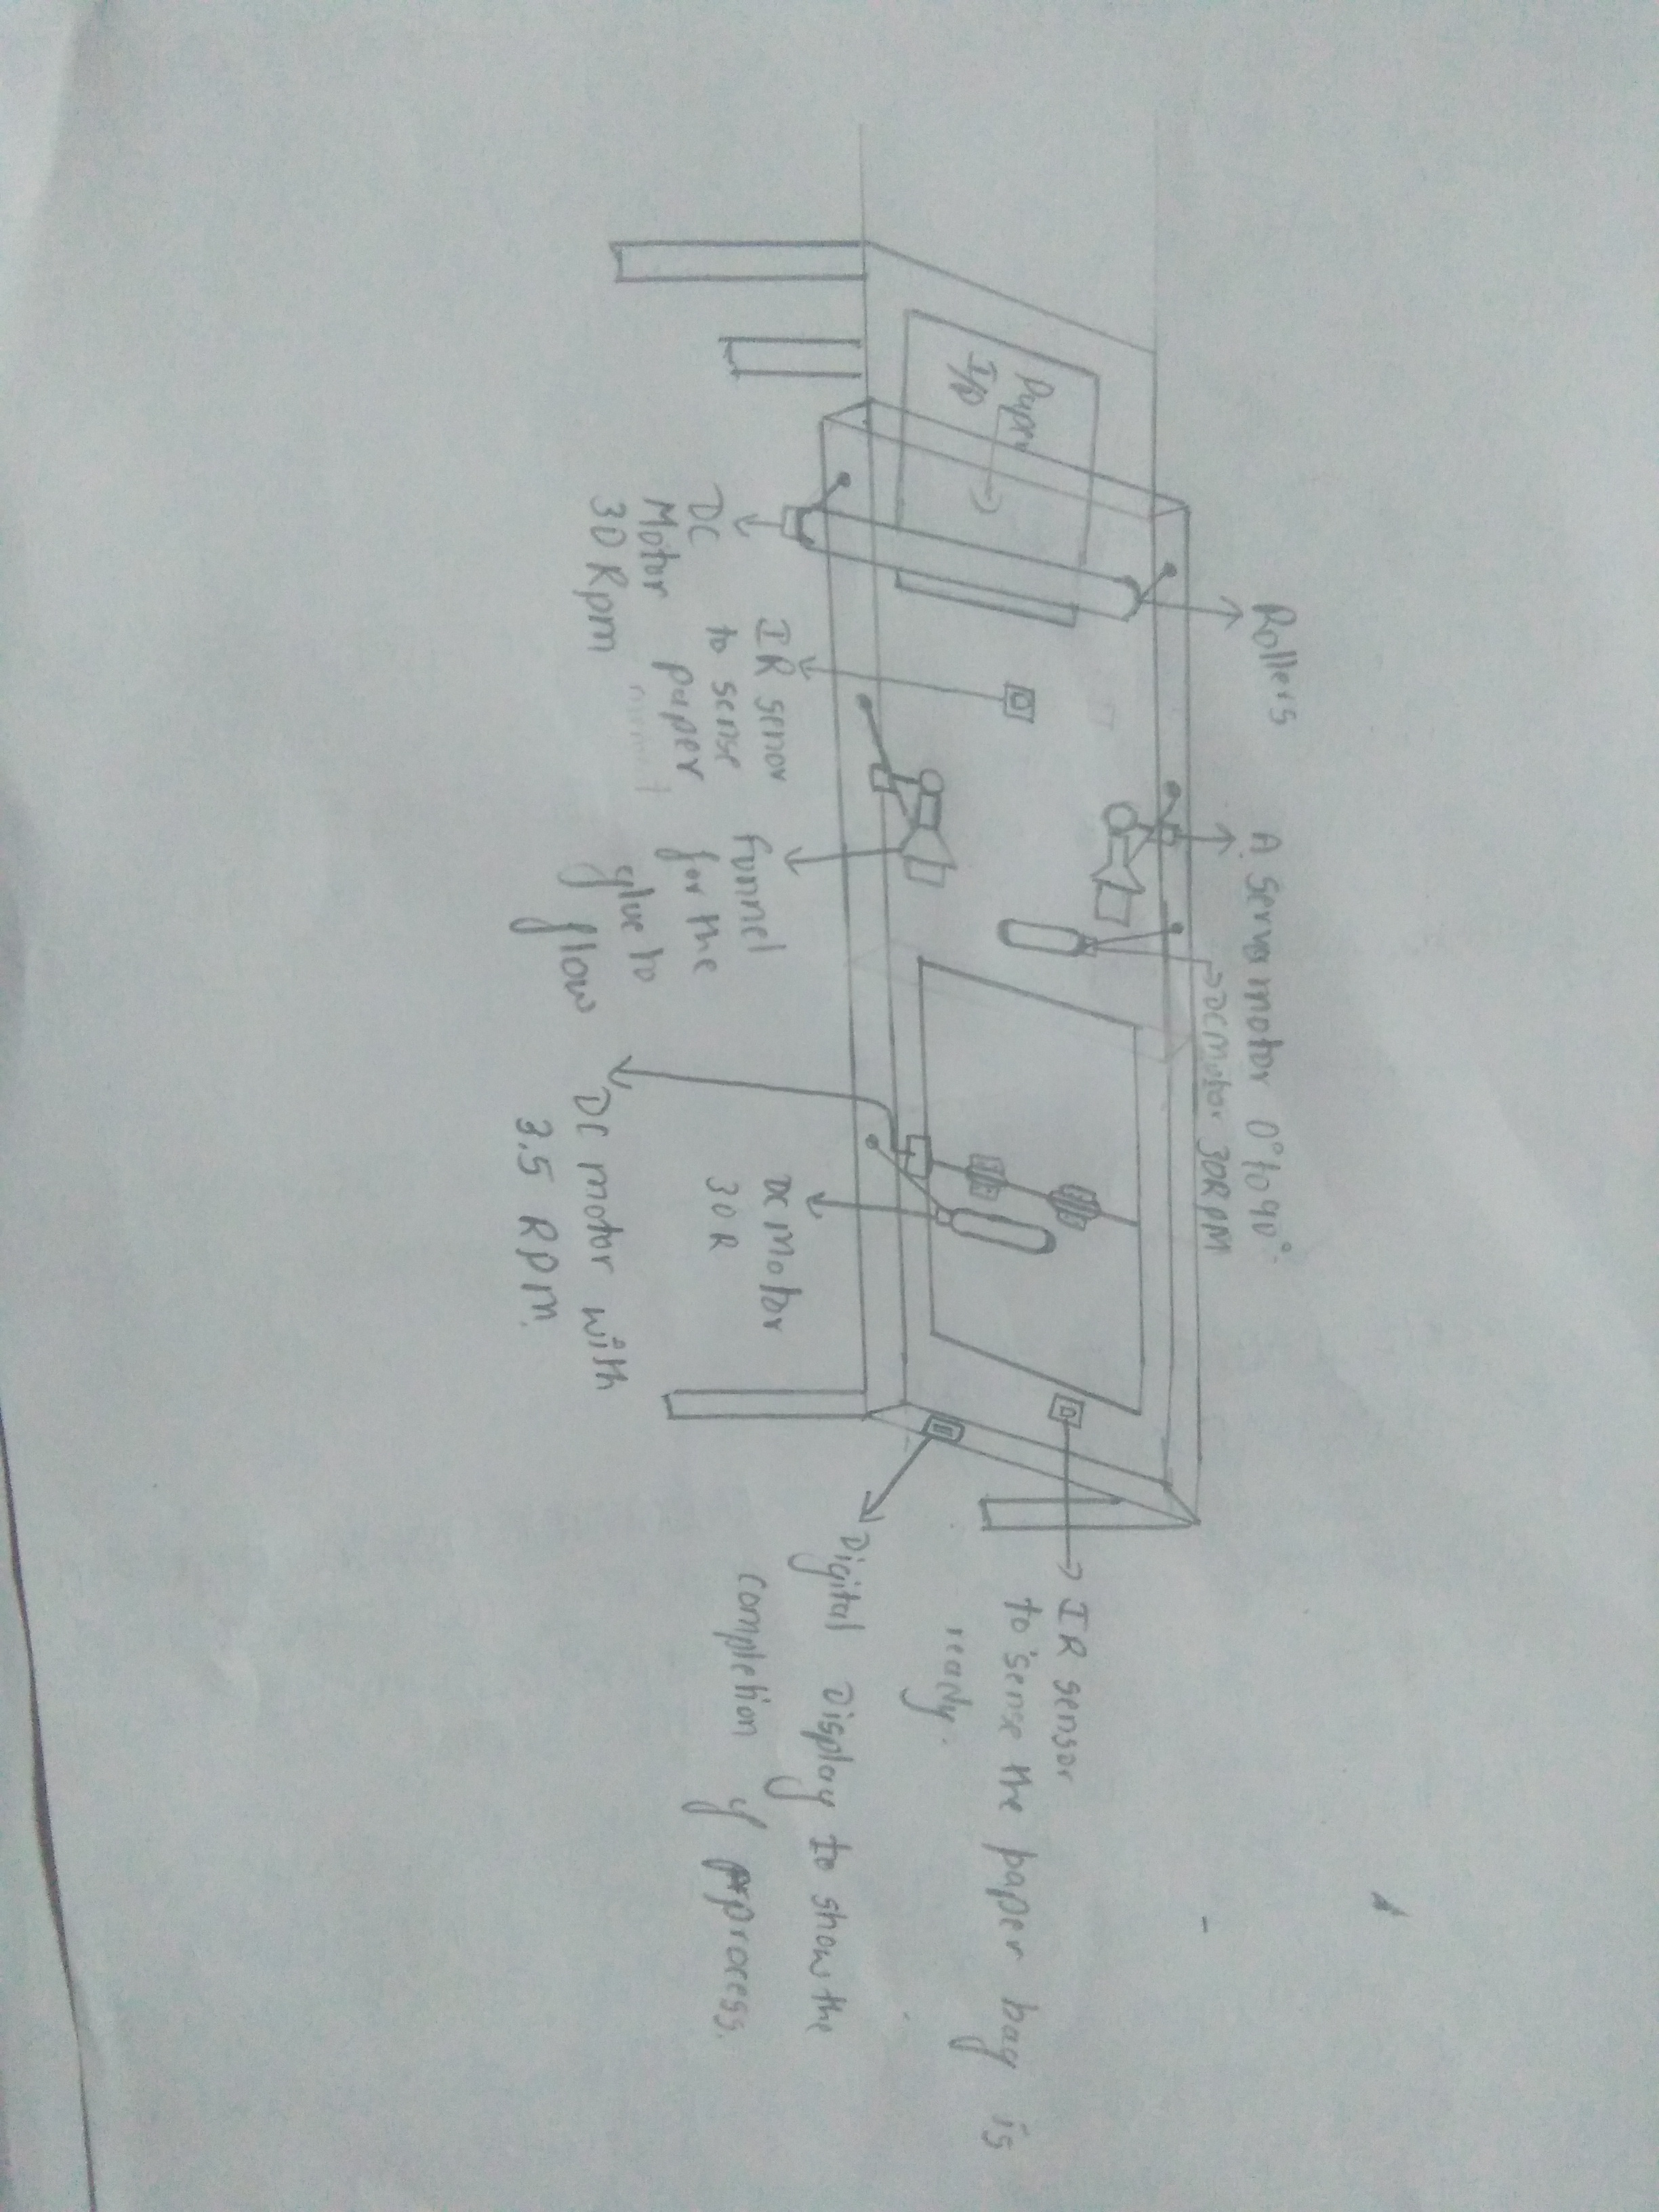 Rollers
A servo motor 0° to 90°
DC Motor 30RPM
Paper
I/P
IR sensor
to sense the paper bag is
ready.
Digital Display to show the
completion of process.
IR senor
to sense
paper
Funnel
for the
glue to
flow
DC
Motor
30 Rpm
DC Motor
30 R
DC motor with
3.5 RPM.